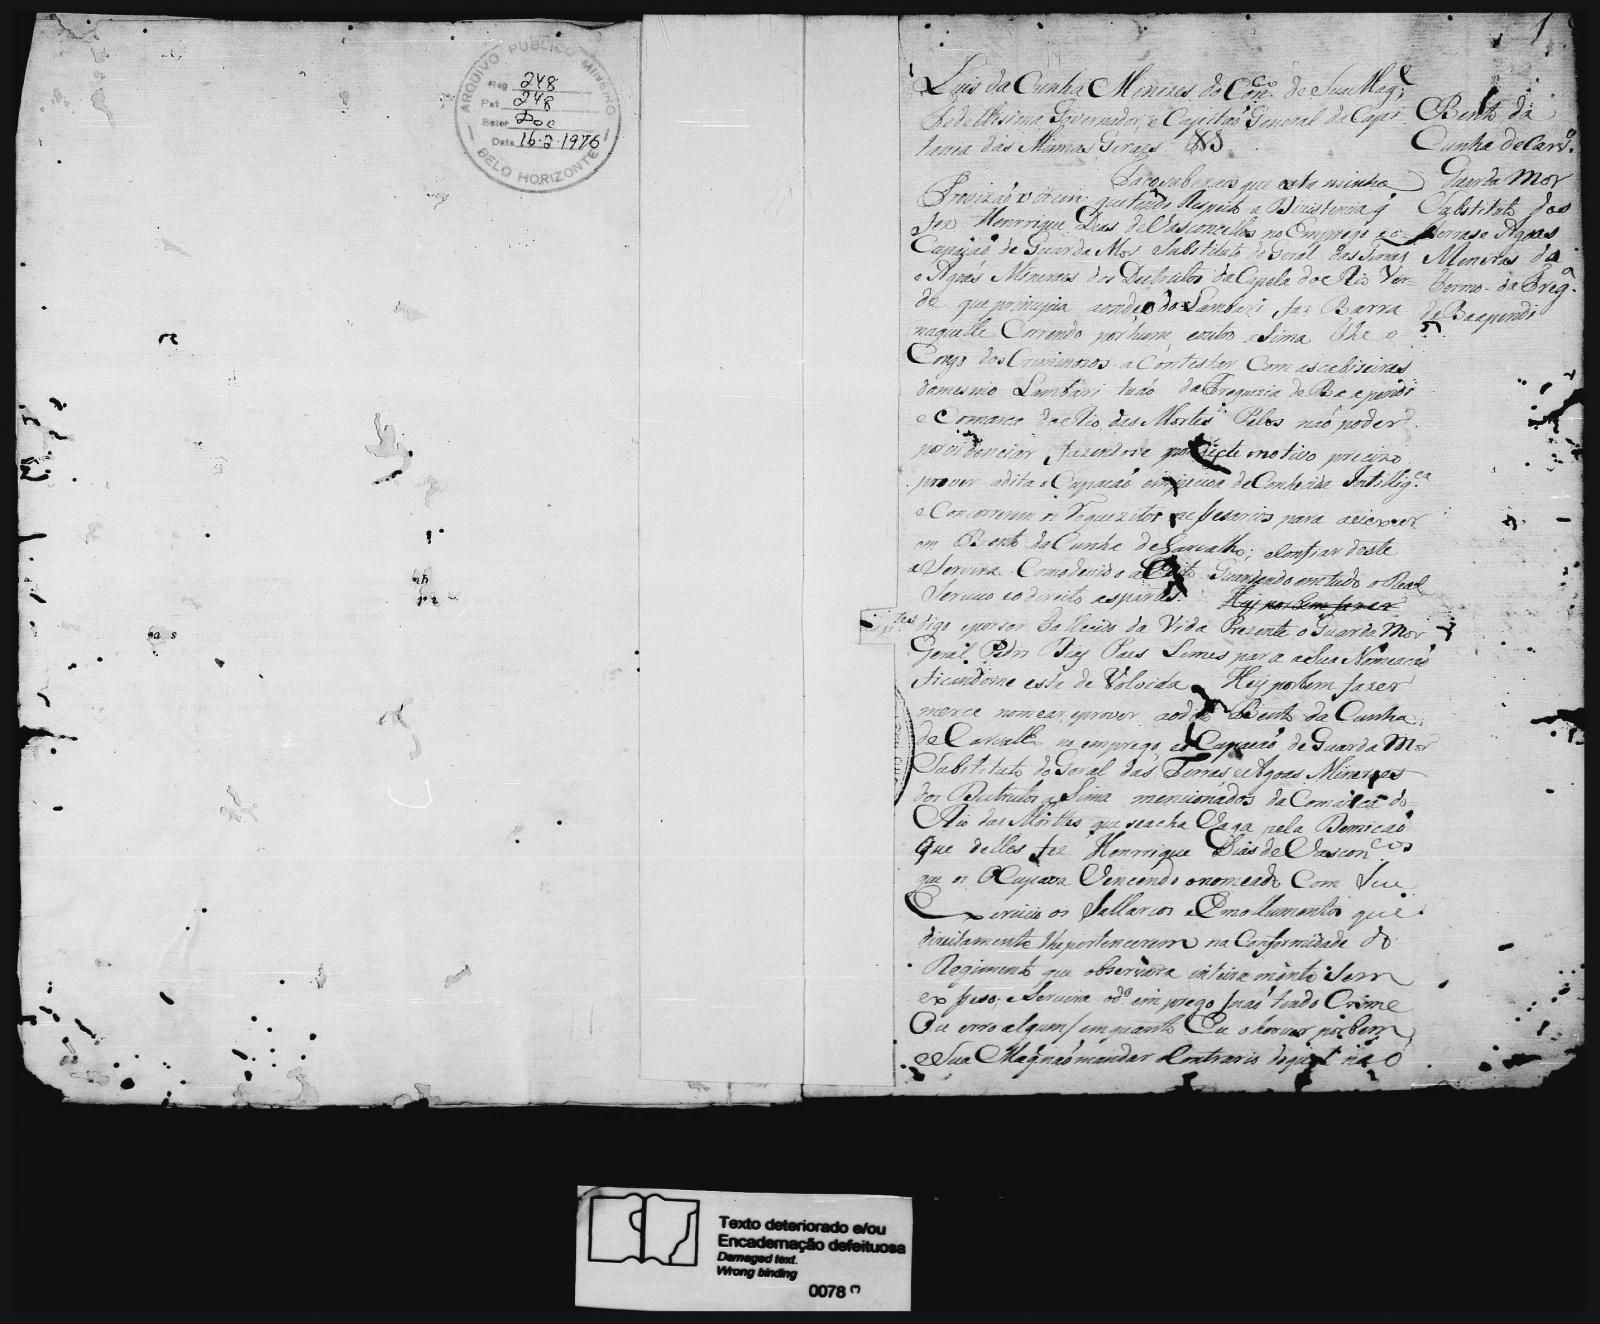 ARQUIVO PÚBLICO MINEIRO
Reg 248
Pat. 248
Setor Doc
Data 16-2-1976
BELO HORIZONTE
1
Luis da Cunha Menezes do Conco. de Sua Mage
Fedellissima Governador, e Capitão General da Capi
tania das Minnas Geraes &&
Faço saber aos que esta minha
Provizão virem que tendo Respeito a Dezistencia q
fez Henrrique Dias de Vasconcelos no Emprego e o
Cupação de Guarda Mor Substituto do Geral das Terras
e Agoas Mineraes dos Destritos da Capela do Rio Ver
de que principia aonde o do Lambari faz Barra
naquelle Correndo por hum, e outro asima the o
Corgo dos Criminozos a Contestar Com as cabiseiras
do mesmo Lambari tudo da Freguezia de Baependi
e Comarca do Rio das Mortes Pelos não poder
providenciar, fazendo se por este motivo precizo
prover a dita o Cupacão em pessoa de Conhecida Intillig.ca
e Concorrerem os Requezitos nessesarios para a exercer
em Bento da Cunha de Carvalho; e Confiar deste
a Servira Como devido a Guardando em tudo o Real
Servico e o direito as partes. Hej por bem fazer
tigo e por ser Fallecido da Vida Prezente o Guarda Mor
Geral Pedro Dias Paes Lemes para a Sua Nomeacão
ficandome esta de Volvida Hej por bem fazer
merce nomear, e prover ao dito Bento da Cunha
de Carvalho no emprego, e o Cupacão de Guarda Mor
Substituto do Geral das Terras e Agoas Mineraes
dos Destritos a Sima mencionados da Comarca do
Rio das Morttes que se acha Vaga pela Demicão
que delles fez Henrrique Dias de Vasconcos
que os OCupava Vencendo o nomeado Com Seu
Exercicio os Sallarios e Emollumentos que
direitamente lhe pertencerem na Conformidade do
Regimento que observara inteira mente Sem
exsseso; e Servira o do. em prego / não tendo Crime
Ou erro algum / em quanto Eu o houver por bem,
e Sua Mag. não mandar o Contrario do qual não
Bento da
Cunha de Carv.o
Guarda Mor
Substituto das
terras e Agoas
Mineras da
termo da Freg.a
de Baapendi
Texto deteriorado e/ou
Encadernação defeituosa
Damaged text.
Wrong binding
0078